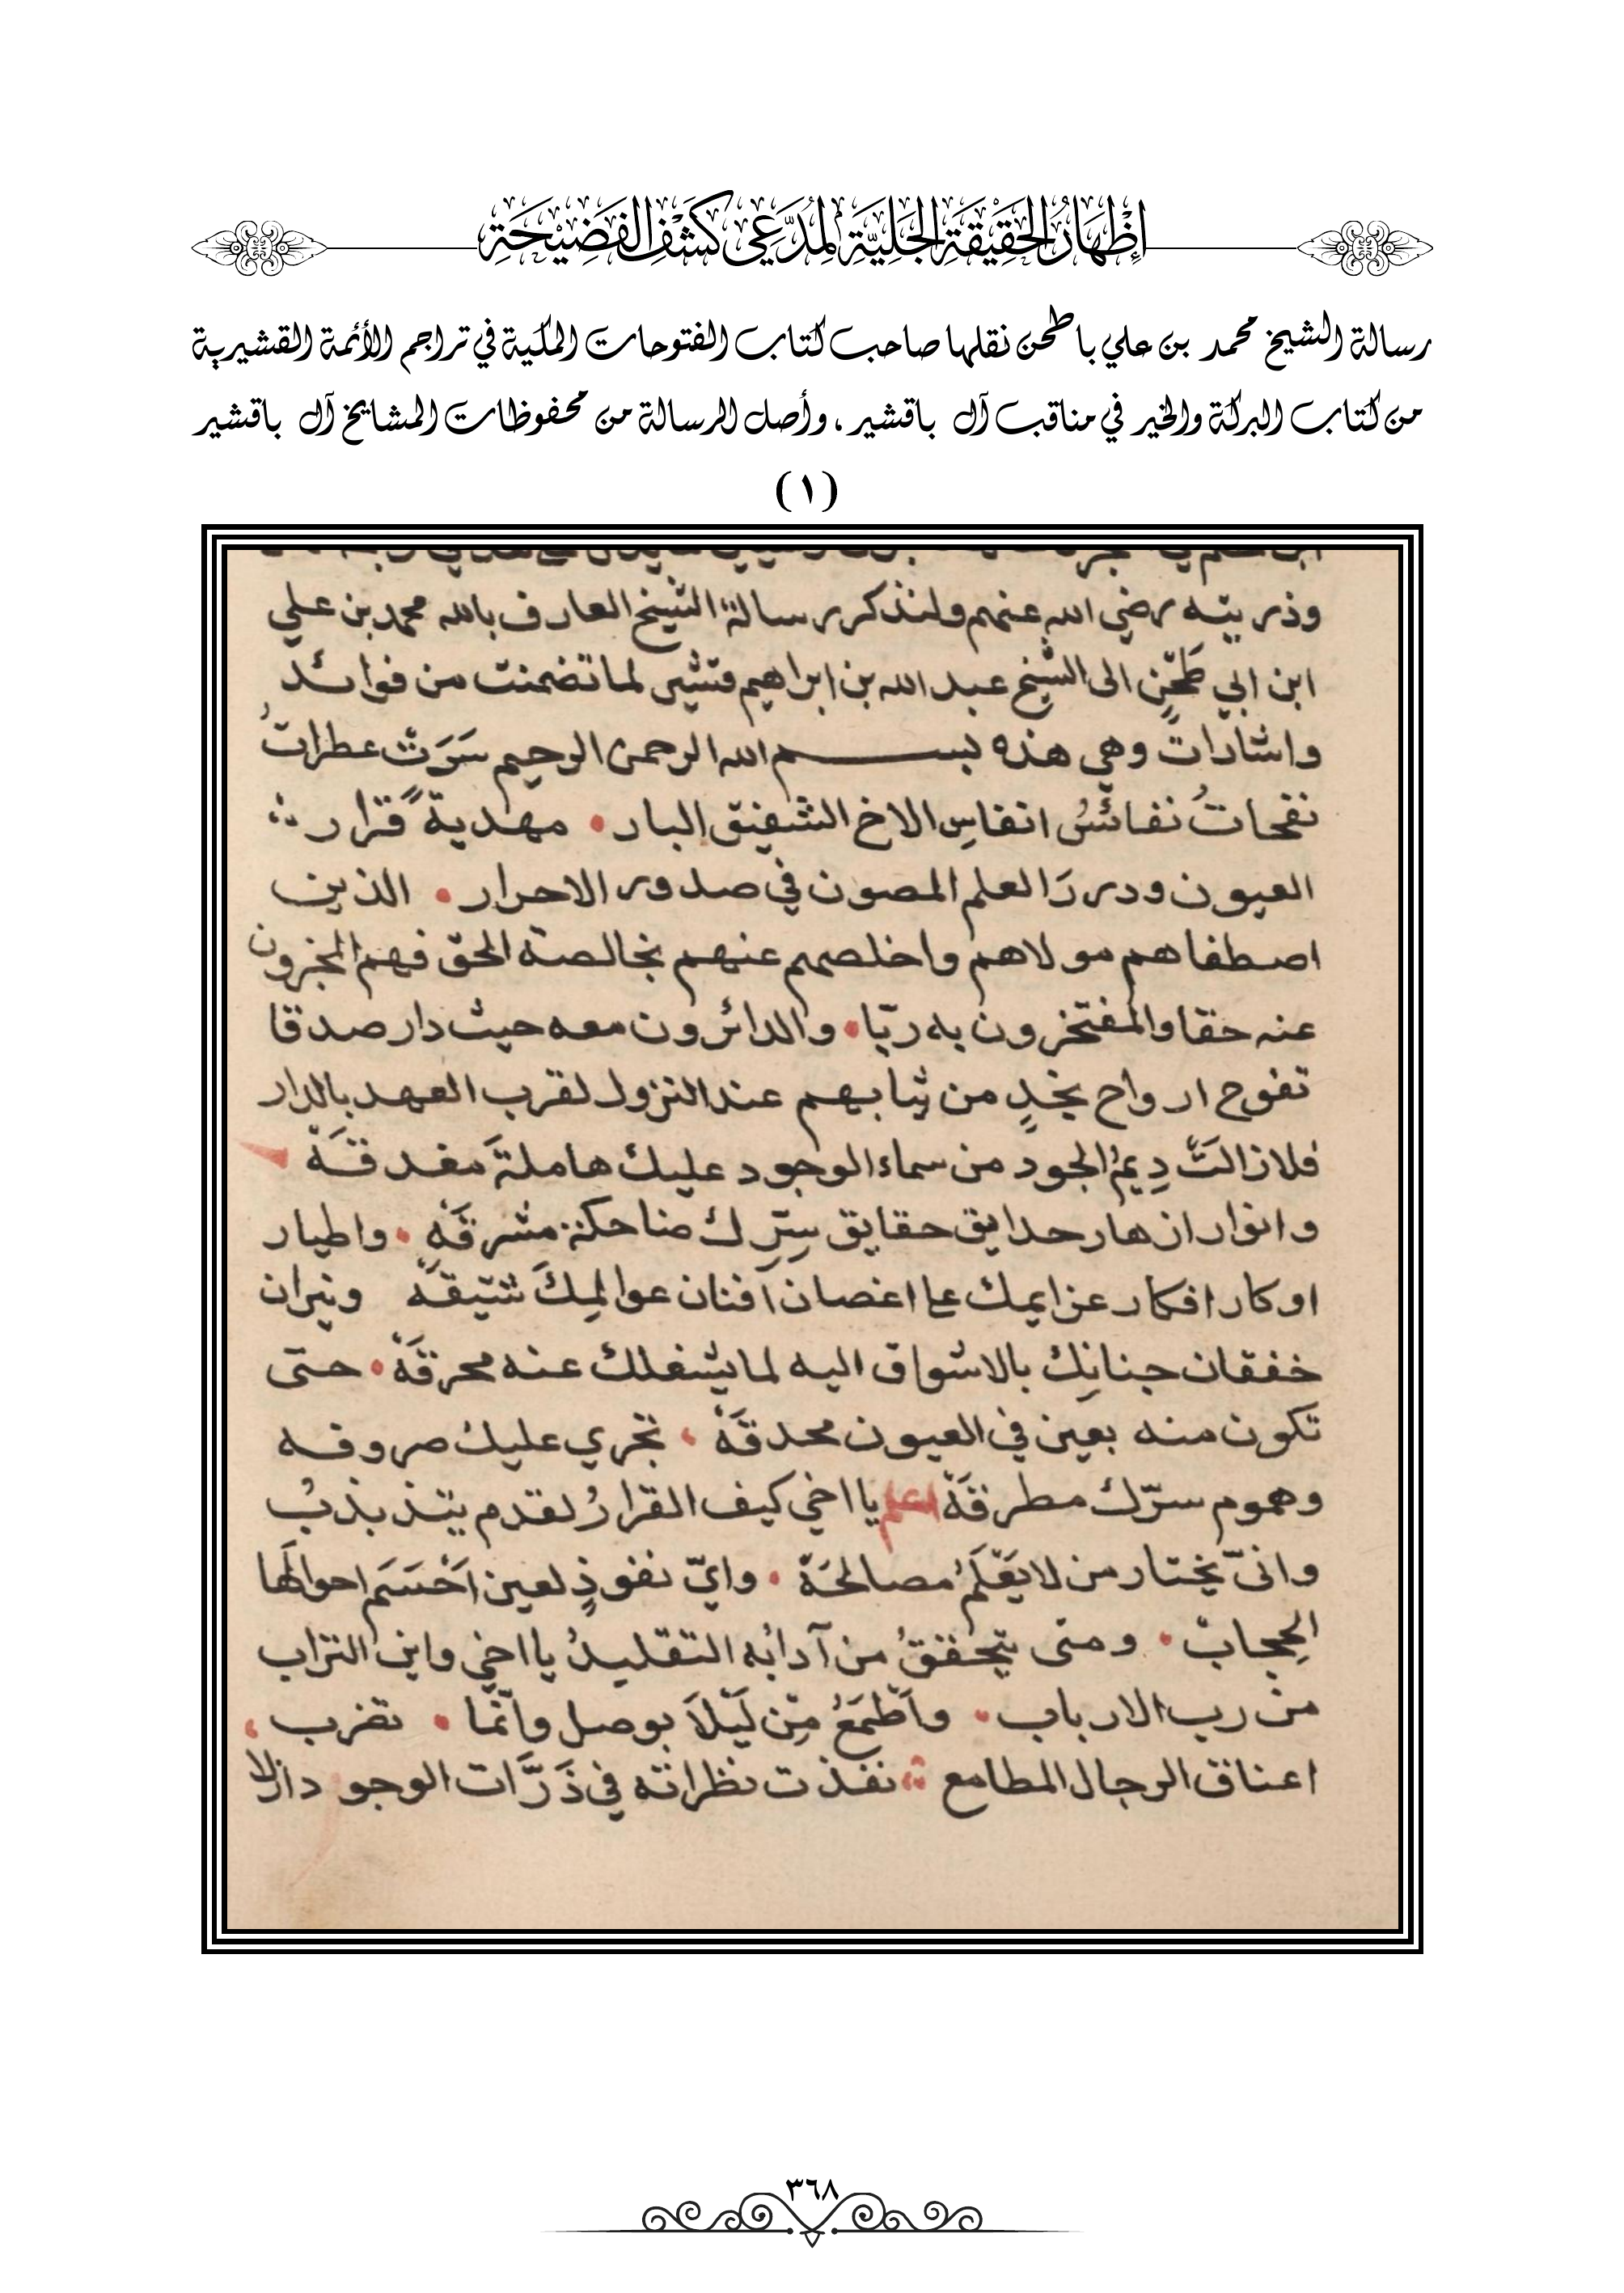 إِظْهَارُ الحَقِيْقَةِ الجَلِيَّةِ لِمُدَّعِي كَشْفِ الفَضِيْحَةِ
رسالة الشيخ محمد بن علي باطحن نقلها صاحب كتاب الفتوحات المكية في تراجم الأئمة القشيرية
من كتاب البركة والخير في مناقب آل باقشير ، وأصل الرسالة من محفوظات المشايخ آل باقشير
(١)
وذريته رضي الله عنهم ولنذكر رسالة الشيخ العارف بالله محمد بن علي
ابن ابي طحّن الى الشيخ عبد الله بن ابراهيم قشير لما تضمنت من فوائد
واشارات وهي هذه بسم الله الرحمن الرحيم سَرَت عطراتُ
نفحاتُ نفائسُ انفاسِ الاخ الشفيق البار • مهدية قرار
العيون ودررَ العلم المصون في صدور الاحرار • الذين
اصطفاهم مولاهم واخلصهم عنهم بخالصة الحق فهم المخبرون
عنه حقا والمفتخرون به ربّا • والدائرون معه حيث دار صدقا
تفوح ارواح نجدٍ من ثيابهم عند النزول لقرب العهد بالدار
فلازالتَّ دِيمُ الجود من سماء الوجود عليك هاملةَ مغدقَة
وانوار ازهار حدايق حقايق سِرِّك ضاحكة مشرقَة • واطيار
اوكار افكار عزايمك على اغصان أفنان عوالمِكَ شيقَة ونيران
خفقان جنانِك بالاشواق اليه لما يشغلك عنه محرقَة • حتى
تكون منه بعين في العيون محدقَة ، تجري عليك صروفه
وهموم سرّك مطرقَة اعلم يا اخي كيف القرارُ لقدم يتذبذبُ
وانّى يختار من لا يَعْلَمُ مصالحَة • وايّ نفوذٍ لعين احوالَها
الحِجابْ • ومتى يتحققُ من آدابُه التقليدُ يا اخي واين التراب
من رب الارباب • وأطْمَعُ مِن لَيْلَا بوصل وانّما • تضرب ،
اعناق الرجال المطامع نفذت نظراته في ذَرَّات الوجود ازلا
٣٦٨